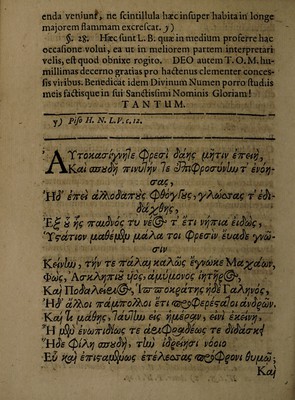 enda veniunt, ne scintilla hæc insuper habita in longe
majorem flammam excrescat. y)
§. 28. Hæc sunt L.B. quæ in medium proferre hac
occasione volui, ea ut in meliorem partem interpretari
velis, est quod obnixe rogito. DEO autem T.O.M. hu-
millimas decerno gratias pro hactenus clementer conces-
sis viribus. Benedicat idem Divinum Numen porro studiis
meis factisque in sui Sanctissimi Nominis Gloriam!
TANTUM.
y) Piso H. N. L.V. c.12.
Αὐτοκασίγνητε φρεσὶ δαῆς μῆτιν
Καὶ σπουδὴ πινυτήν τε
σας,
Ἠδ' ἐπεὶ ἀλλοδαποὺς φθόγγους, γλώσσας τ' ἐδι-
δάχθης,
Ἐξ οὗ ἧς παιδνὸς τυ νέος τ' ἔτι νήπια εἰδὼς,
Ὑστάτιον μάλα τοι φρεσὶν εὔαδε γνῶ-
σιν
Κείνων, τήν τε πάλαι καλῶς ἔγνωκε Μαχάων,
Φὼς, Ἀσκληπιοῦ υἱὸς, ἀμύμονος ἰητῆρος,
Καὶ Ποδαλείριος, Ἱπποκράτης ἠδὲ Γαληνὸς,
Ἠδ' ἄλλοι πάμπολλοι ἔτι προφερέστατοι ἀνδρῶν.
Καί τε μάθης, ταύτην εἰς ἡμέραν, εἰνὶ ἐκείνῃ,
Ἡ μὲν ἐνωπιδίως τε ἀειφραδέως τε διδάσκῃ
Ἠδὲ φίλη σπουδὴ, τῷ ἰδρείησι νόοιο
Εὖ καὶ ἐπισταμένως ἐτέλεσσας πρόφρονι θυμῷ;
Καὶ